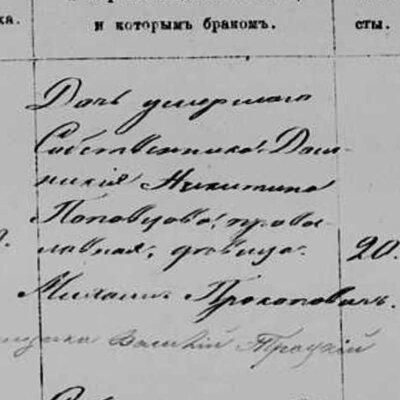 ка. и которымъ бракомъ. сты.
Дочь умершаго
Собственника Дом-
никія Никитина
Поповцова, правос-
лавная, дѣвица. 20.
Михаилъ Прокоповичъ.
Василій Троцкій